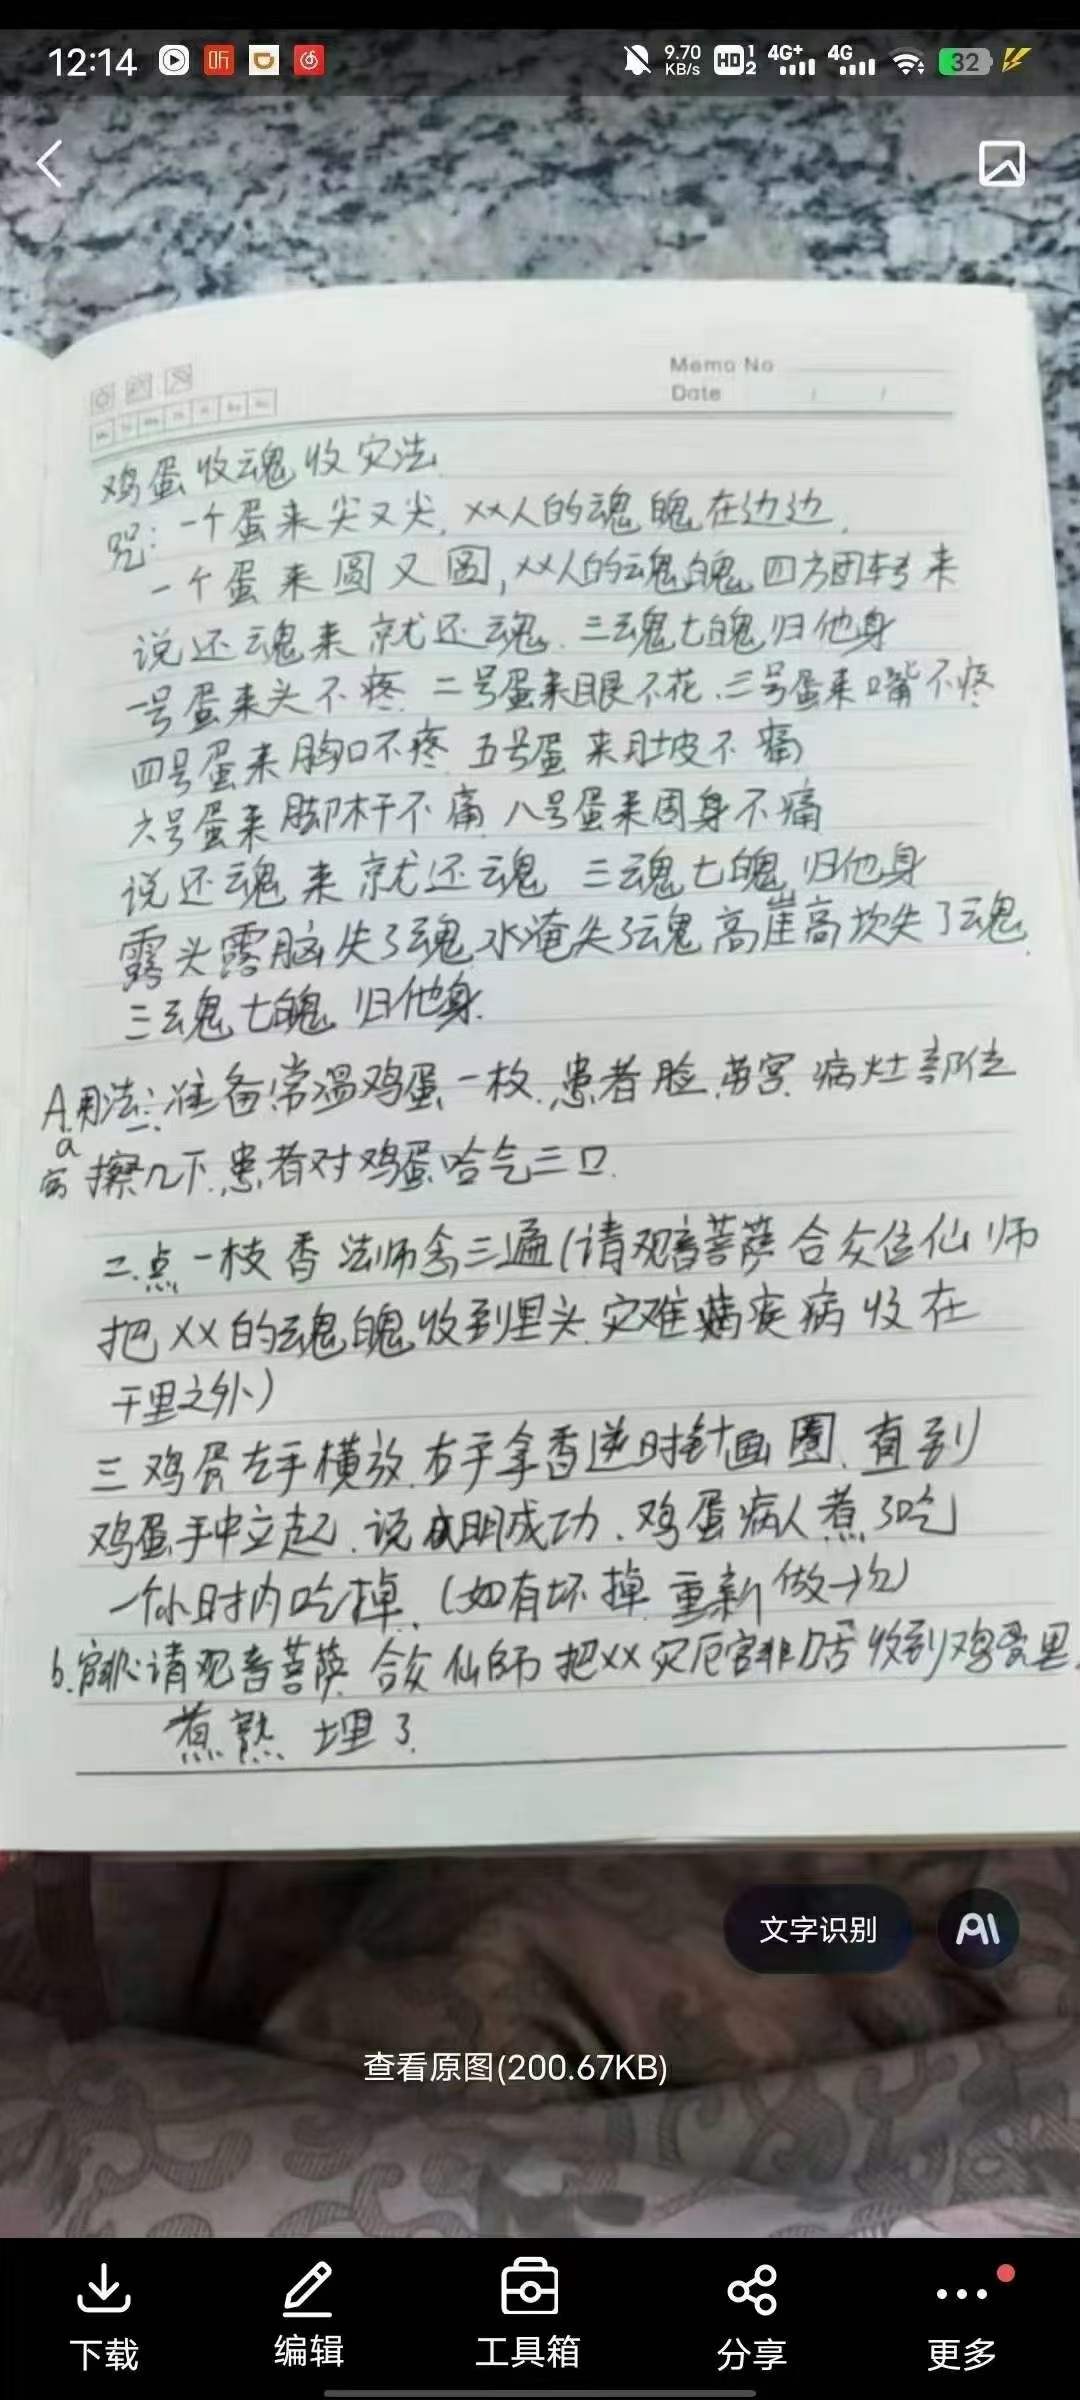 12:14
听
9.70
KB/s
HD 1 2
4G+
4G
32
Memo No
Date / /
鸡蛋收魂收灾法
咒:一个蛋来尖又尖,XX人的魂魄在边边,
一个蛋来圆又圆,XX人的魂魄四方团转来
说还魂来就还魂.三魂七魄归他身
一号蛋来头不疼 二号蛋来眼不花.三号蛋来嘴不疼
四号蛋来胸口不疼 五号蛋来肚皮不痛
六号蛋来脚杆不痛 八号蛋来周身不痛
说还魂来就还魂 三魂七魄归他身
露头露脑失了魂 水淹失了魂 高崖高坎失了魂
三魂七魄归他身.
A.用法:一.准备常温鸡蛋一枚.患者脸.劳宫.病灶部位
a
擦几下.患者对鸡蛋哈气三口.
二.点一枝香 法师念三遍(请观音菩萨合众位仙师
把XX的魂魄收到里头.灾难疾病收在
千里之外)
三 鸡蛋左手横放.右手拿香逆时针画圈.直到
鸡蛋手中立起.说明成功.鸡蛋病人煮了吃
一个小时内吃掉.(如有坏掉重新做一次)
b.请观音菩萨 合众仙师把XX灾厄官非口舌收到鸡蛋里.
煮熟 埋了.
文字识别
AI
查看原图(200.67KB)
下载
编辑
工具箱
分享
更多